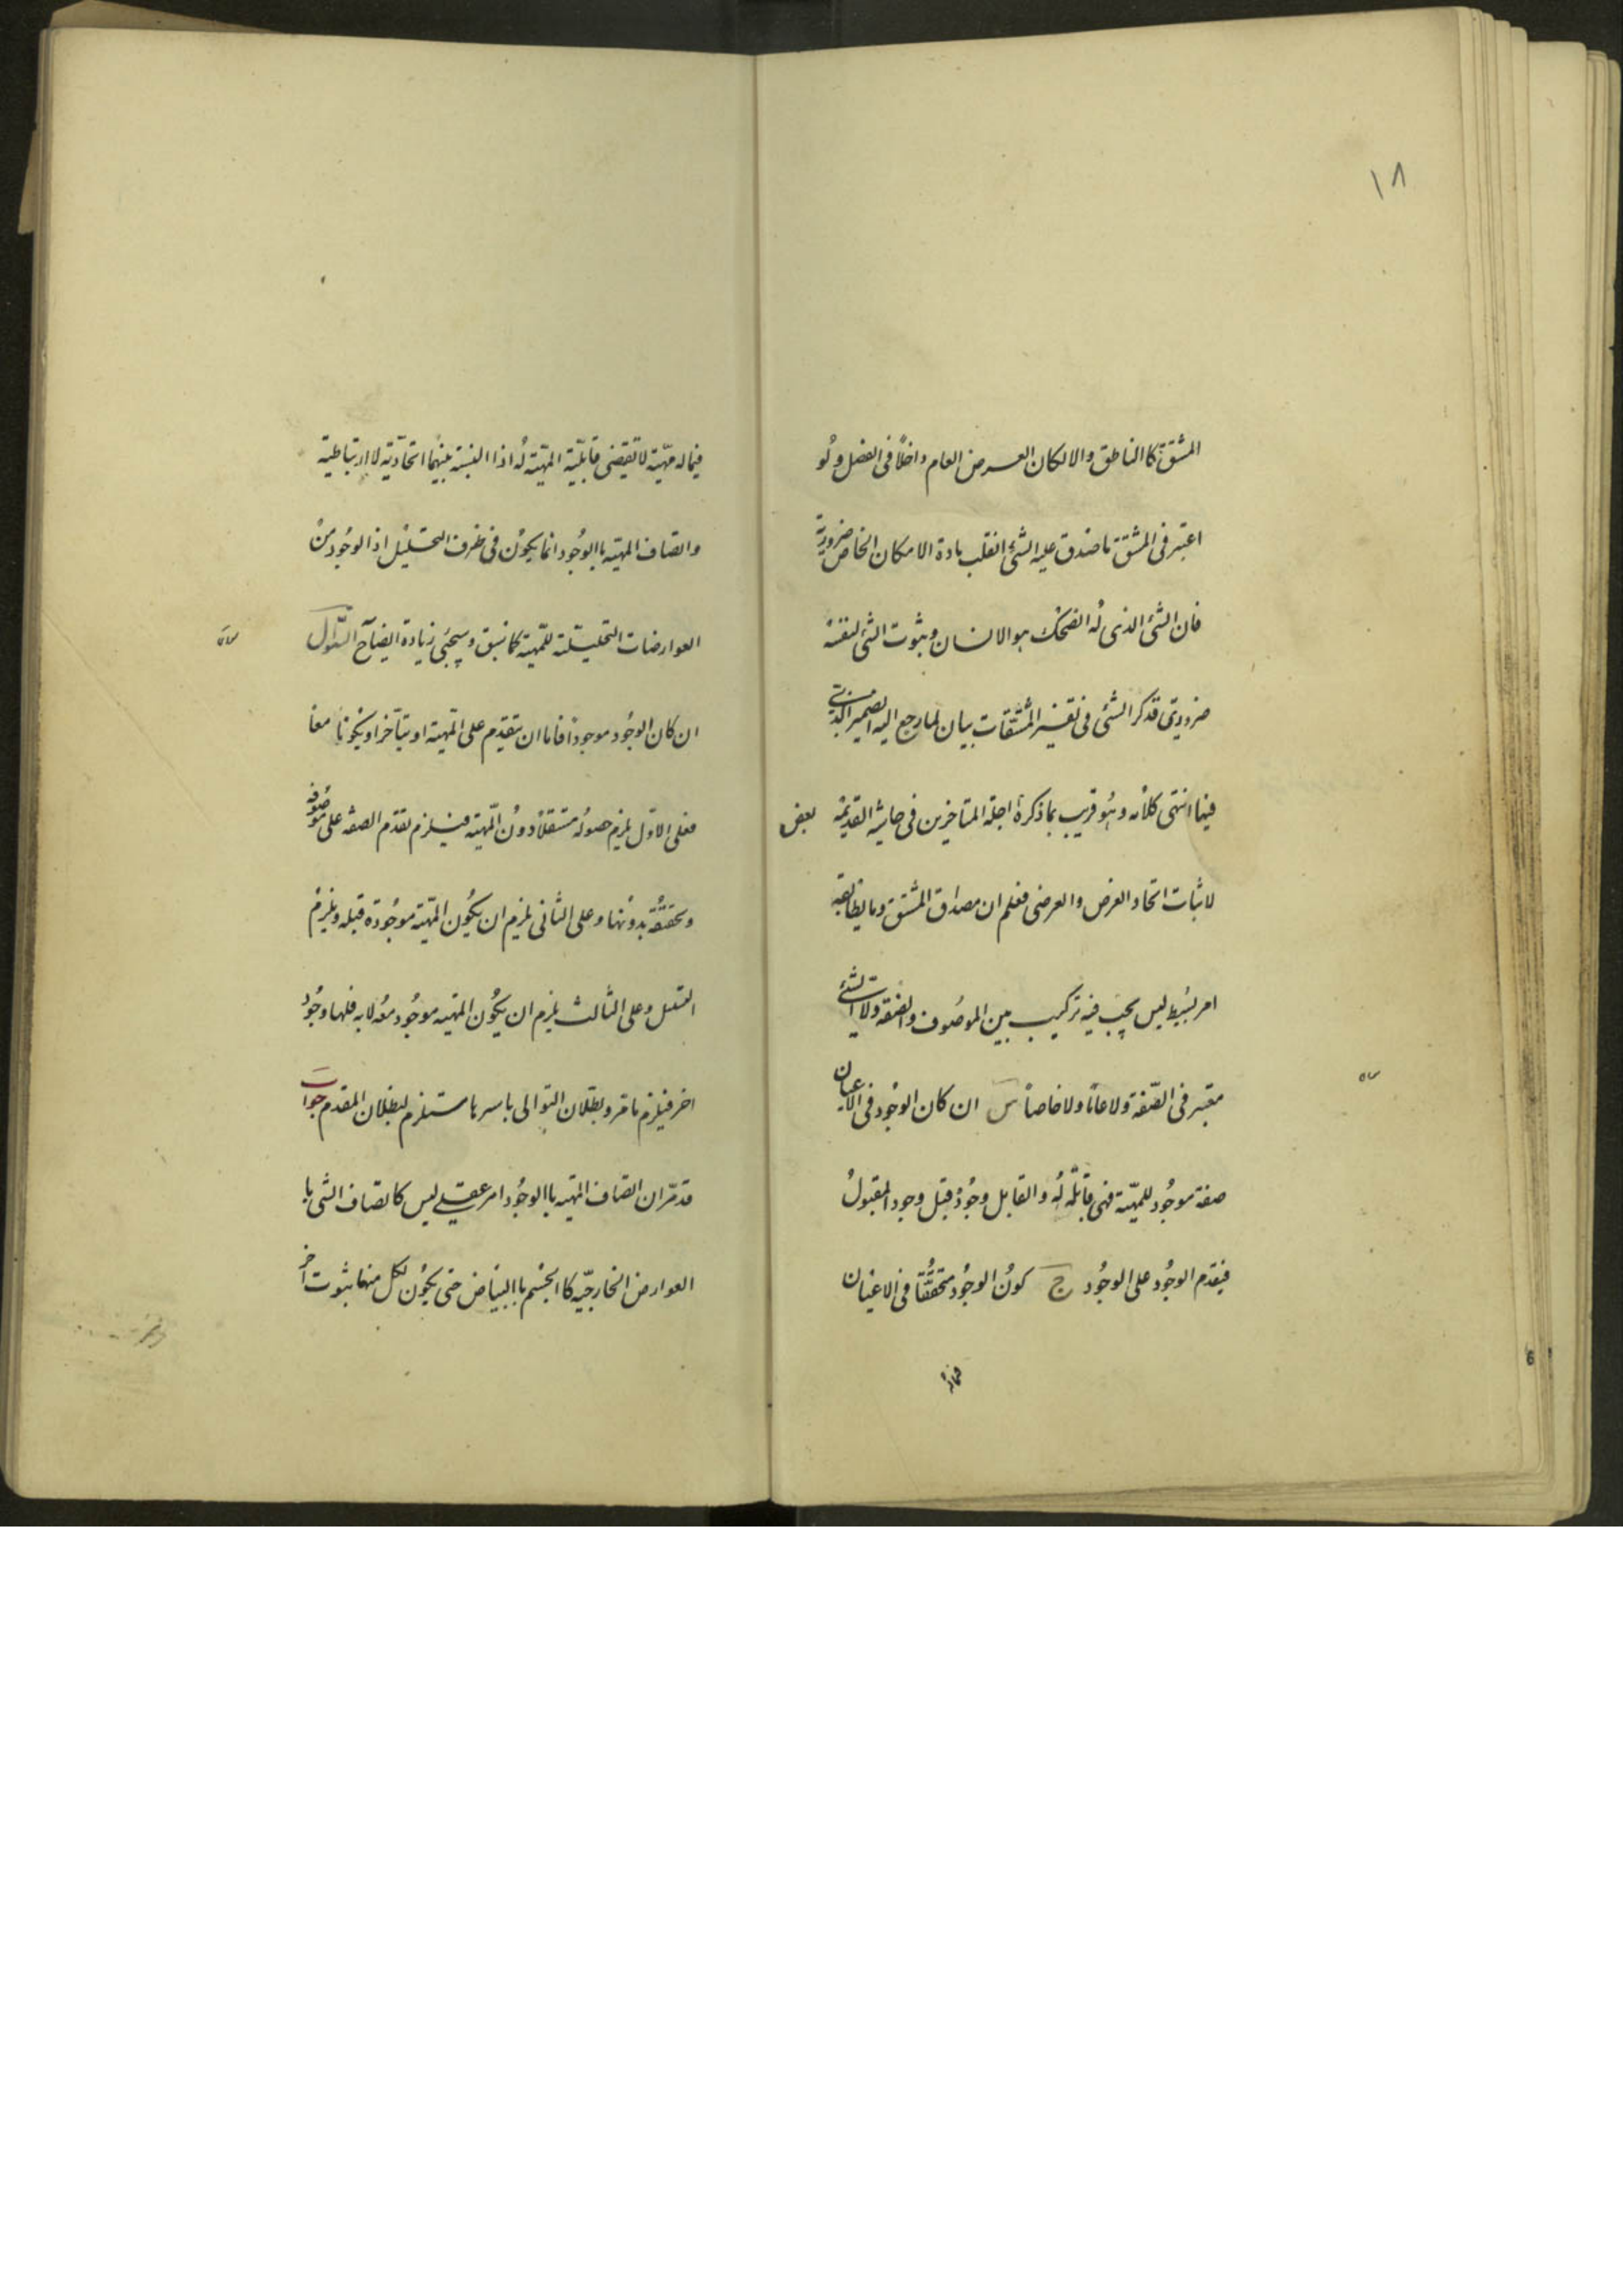 ١٨
المشتق كالناطق والا لكان العرض العام داخلاً فى الفصل ولو
اعتبر فى المشتق ما صدق عليه الشئ انقلب مادة الامكان الخاص ضرورية
فان الشئ الذى له الضحك هو الانسان وثبوت الشئ لنفسه
ضرورى فذكر الشئ فى تفسير المشتقات بيان لما رجع اليه الضمير الذى
فيها انتهى كلامه وهو قريب بما ذكره اجلة المتاخرين فى حاشية القديمة بعض
لاثبات اتحاد العرض والعرضى فعلم ان مصداق المشتق وما يطابقه
امر بسيط ليس يجب فيه تركيب بين الموصوف والصفة ولا الشئ
معتبر فى الصفة ولا عاما ولا خاصاً س ان كان الوجود فى الاعيان
صفة موجود للمهية فهى قابلة له والقابل وجود قبل وجود المقبول
فيقدم الوجود على الوجود ج كون الوجود متحققا فى الاعيان
فيما له مهية لا تقتضى قابلية المهية له اذا النسبة بينهما اتحادية لا ارتباطية
واتصاف المهية باالوجود انما يكون فى ظرف التحليل اذ الوجود من
العوارضات التحليلية للمهية كما سبق وسيجئ زيادة ايضاح السؤال
ان كان الوجود موجودا فاما ان يتقدم على المهية او يتأخر او يكونا معا
فعلى الاول يلزم حصوله مستقلا دون المهية فيلزم تقدم الصفة على موصوفه
وتحققه بدونها وعلى الثانى يلزم ان يكون المهية موجودة قبله ويلزم
التسلسل وعلى الثالث يلزم ان يكون المهية موجود معه لا به فلها وجود
اخر فيلزم ما مر وبطلان التوالى باسرها مستلزم لبطلان المقدم جواب
قد مر ان اتصاف المهية باالوجود امر عقلى ليس كاتصاف الشئ با
العوارض الخارجية كا الجسم باالبياض حتى يكون لكل منهما ثبوت اخر